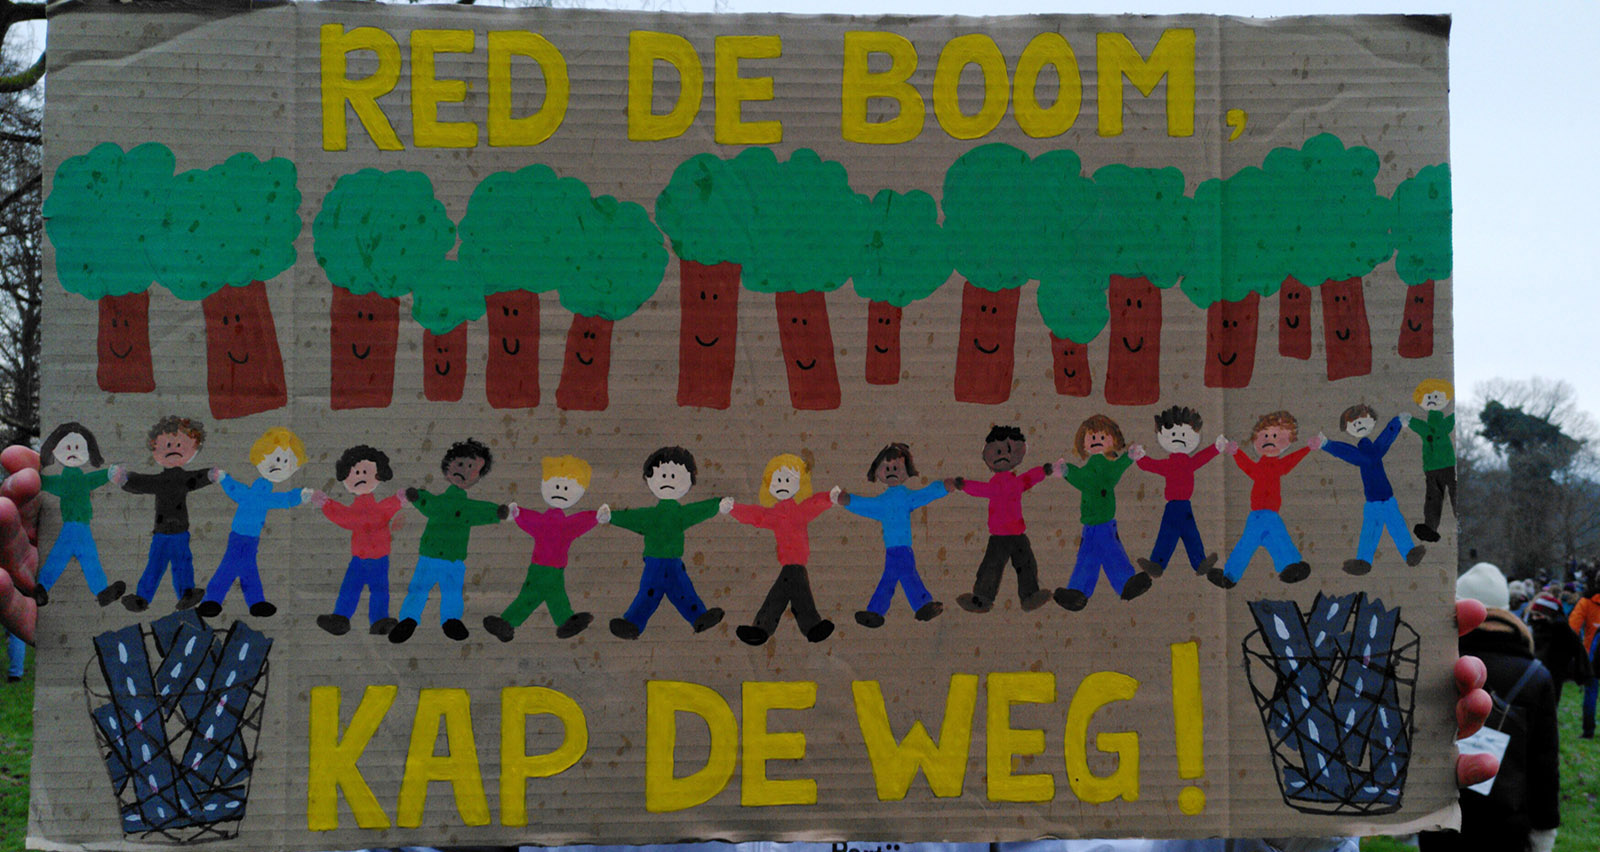 RED DE BOOM,
KAP DE WEG!